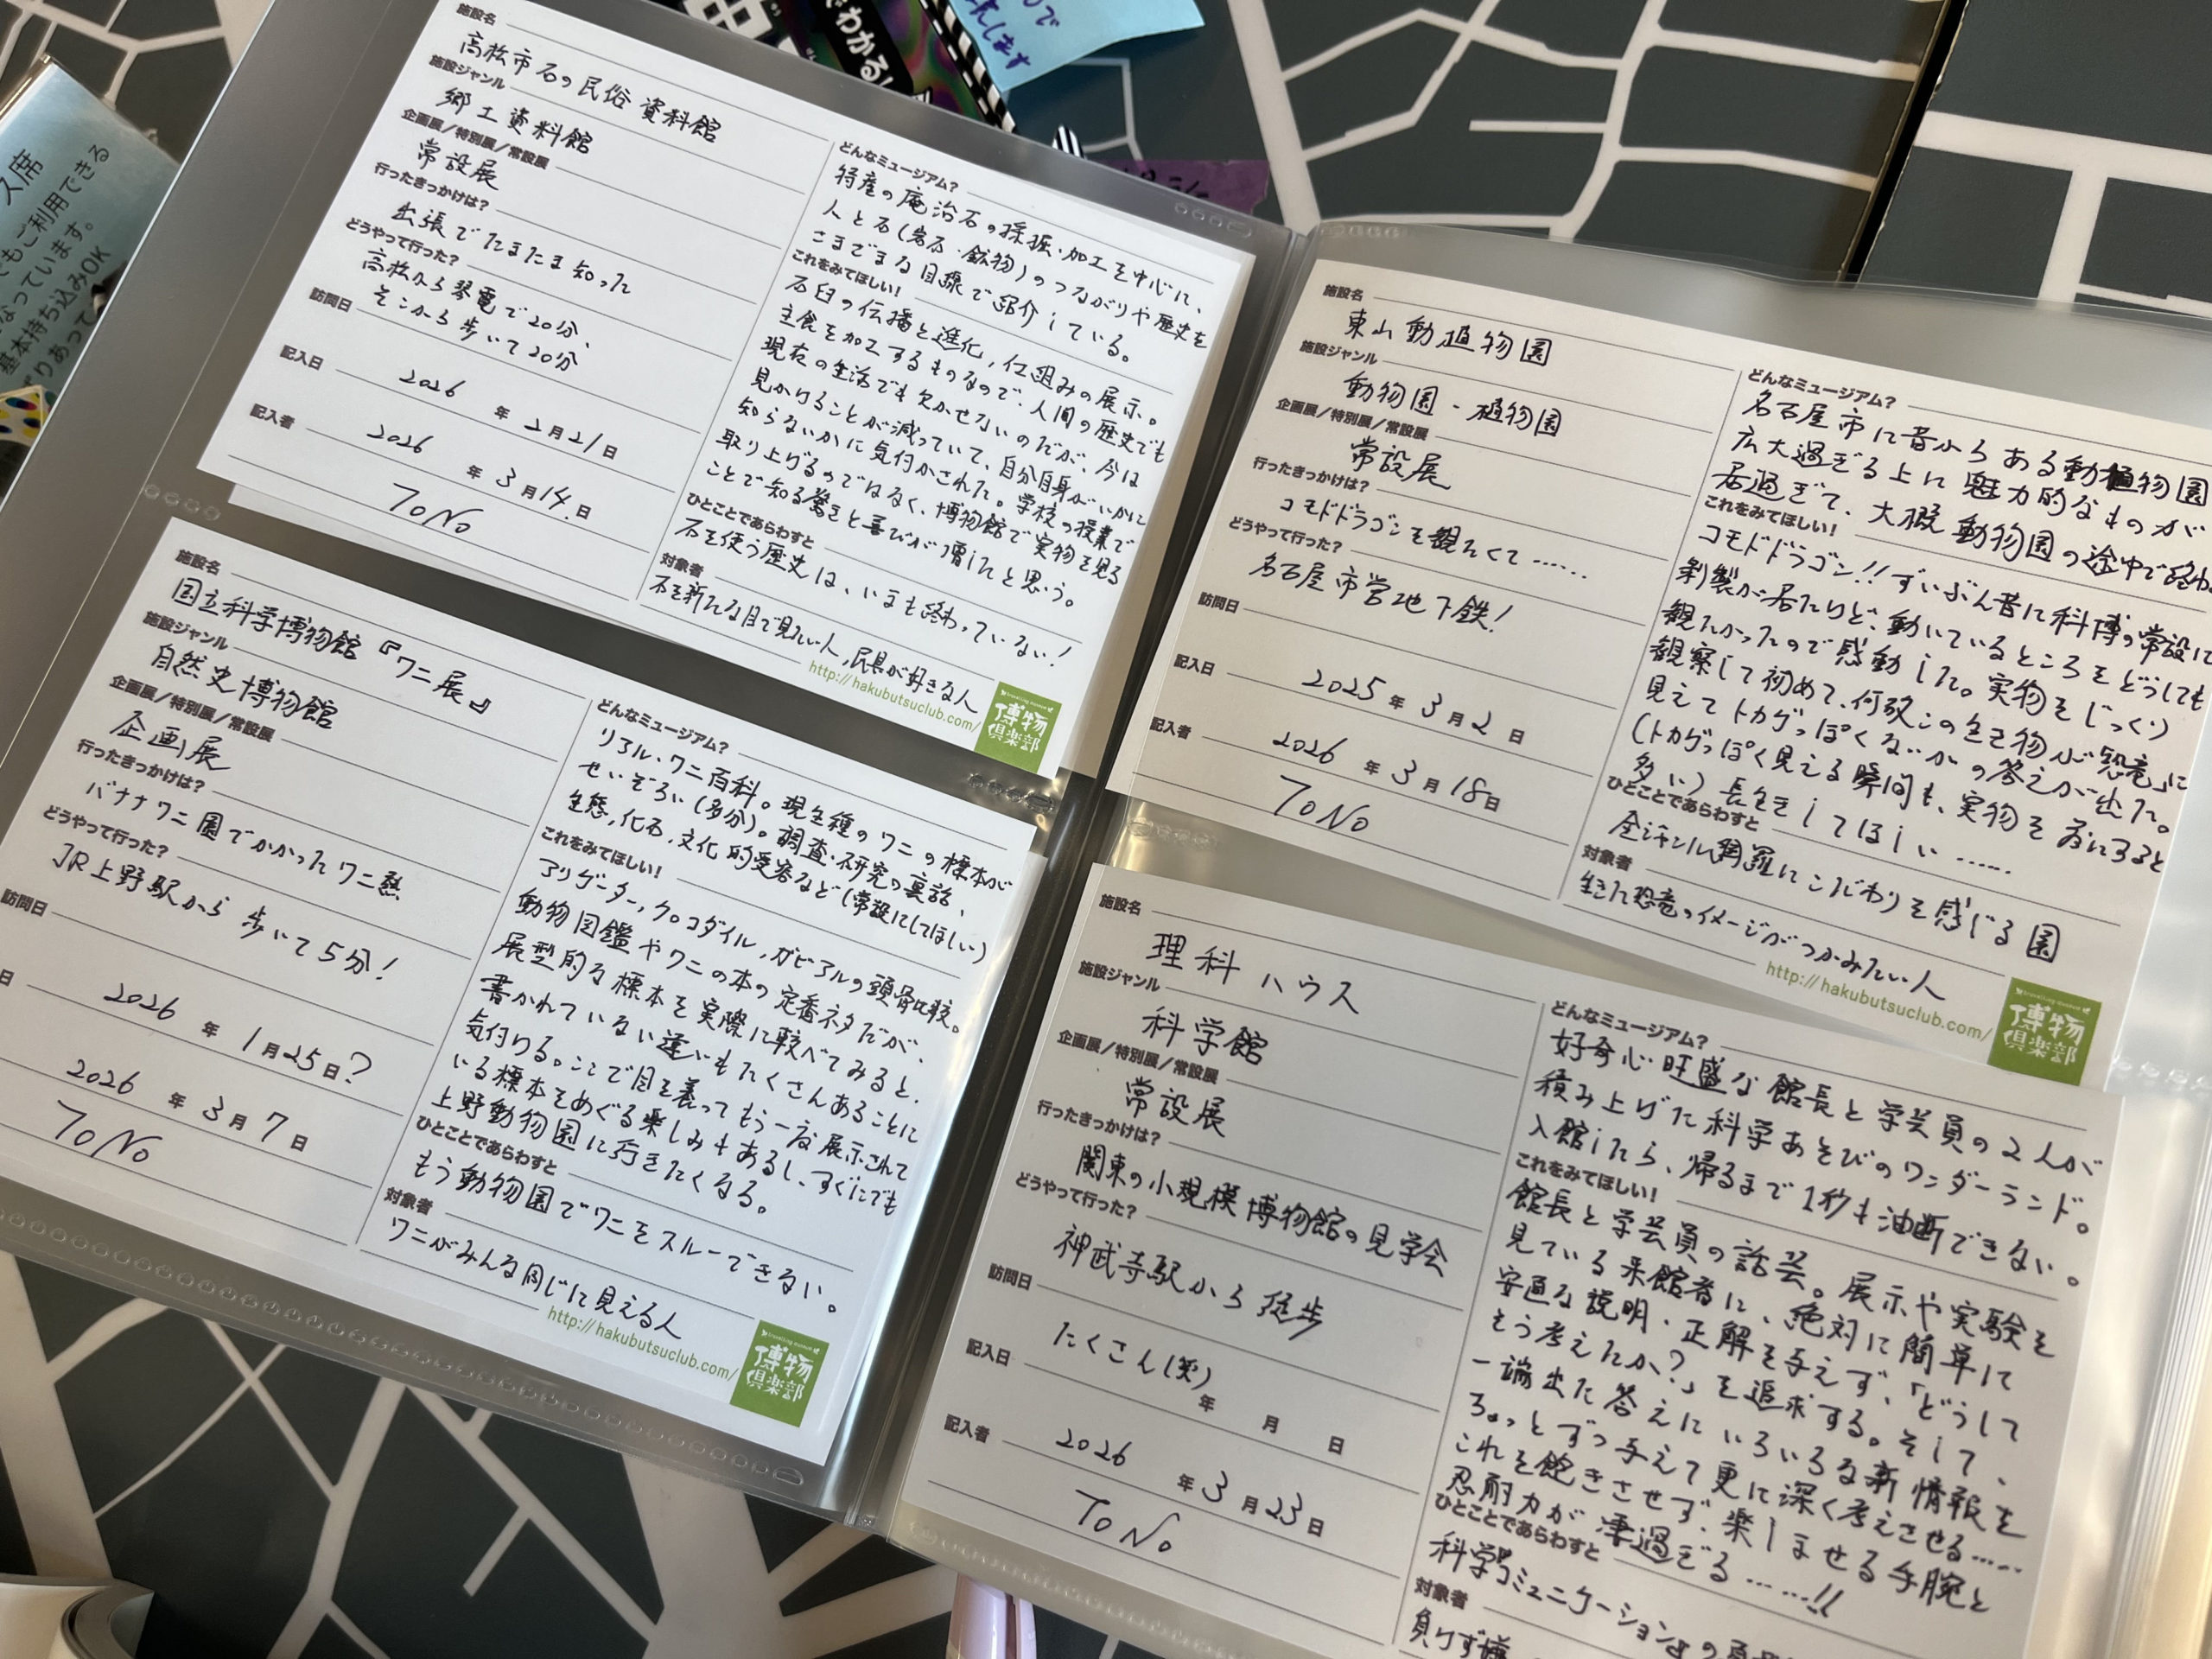 施設名
高松市石の民俗資料館
施設ジャンル
郷土資料館
企画展/特別展/常設展
常設展
行ったきっかけは?
出張でたまたま知った
どうやって行った?
高松から琴電で20分、
そこから歩いて20分
訪問日
2026年2月21日
記入日
2026年3月14.日
記入者
ToNo
どんなミュージアム?
特産の庵治石の採掘・加工を中心に、
人と石(岩石・鉱物)のつながりや歴史を
さまざまな目線で紹介している。
これをみてほしい!
石臼の伝播と進化,仕組みの展示。
主食を加工するものなので、人間の歴史でも
現在の生活でも欠かせないのだが、今は
見かけることが減っていて、自分自身がいかに
知らないかに気付かされた。学校の授業で
取り上げるのではなく、博物館で実物を見る
ことで知る驚きと喜びが増したと思う。
ひとことであらわすと
石を使う歴史は、いまも終わっていない!
対象者
石を新たな目で見たい人,民具が好きな人
http://hakubutsuclub.com/
博物倶楽部
施設名
国立科学博物館『ワニ展』
施設ジャンル
自然史博物館
企画展/特別展/常設展
企画展
行ったきっかけは?
バナナワニ園でかかったワニ熱
どうやって行った?
JR上野駅から歩いて5分!
訪問日
2026年1月25日?
日
2026年3月7日
ToNo
どんなミュージアム?
リアル・ワニ百科。現生種のワニの標本が
せいぞろい(多分)。調査・研究の裏話、
生態,化石,文化的受容など(常設にしてほしい)
これをみてほしい!
アリゲーター,クロコダイル,ガビアルの頭骨比較。
動物図鑑やワニの本の定番ネタだが、
展型的な標本を実際に較べてみると、
書かれていない違いもたくさんあることに
気付ける。ここで目を養ってもう一度展示されて
いる標本をめぐる楽しみもあるし、すぐにでも
上野動物園に行きたくなる。
ひとことであらわすと
もう動物園でワニをスルーできない。
対象者
ワニがみんな同じに見える人
http://hakubutsuclub.com/
博物倶楽部
施設名
東山動植物園
施設ジャンル
動物園・植物園
企画展/特別展/常設展
常設展
行ったきっかけは?
コモドドラゴンを観たくて……
どうやって行った?
名古屋市営地下鉄!
訪問日
2025年3月2日
記入日
2026年3月18日
記入者
ToNo
どんなミュージアム?
名古屋市に昔からある動植物園
広大過ぎる上に魅力的なものが
居過ぎて、大概動物園の途中で
これをみてほしい!
コモドドラゴン!!ずいぶん昔に科博の常設に
剥製が居たけど、動いているところをどうしても
観たかったので感動した。実物をじっくり
観察して初めて、何故この生き物が「恐竜」に
見えてトカゲっぽくないかの答えが出た。
(トカゲっぽく見える瞬間も、実物を前にすると
多い)長生きしてほしい……
ひとことであらわすと
全ジャンル網羅にこだわりを感じる園
対象者
生きた恐竜のイメージがつかみたい人
http://hakubutsuclub.com/
博物倶楽部
施設名
理科ハウス
施設ジャンル
科学館
企画展/特別展/常設展
常設展
行ったきっかけは?
関東の小規模博物館の見学会
どうやって行った?
神武寺駅から徒歩
訪問日
たくさん(笑)
年 月 日
記入日
2026年3月23日
記入者
ToNo
どんなミュージアム?
好奇心旺盛な館長と学芸員の2人が
積み上げた科学あそびのワンダーランド。
入館したら、帰るまで1秒も油断できない。
これをみてほしい!
館長と学芸員の話芸。展示や実験を
見ている来館者に、絶対に簡単に
安直な説明・正解を与えず、「どうして
そう考えたか?」を追求する。そして、
一端出た答えにいろいろな新情報を
ちょっとずつ与えて更に深く考えさせる……
これを飽きさせず、楽しませる手腕と
忍耐力が凄過ぎる……!!
ひとことであらわすと
科学コミュニケーション
対象者
負けず嫌
ス席
でもご利用できる
なっています。
基本持ち込みOK
でわかる!